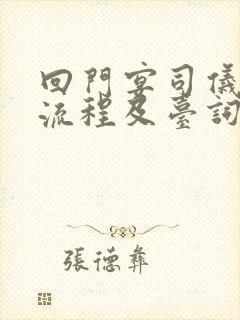 回門宴司儀
流程及臺詞
張德彝